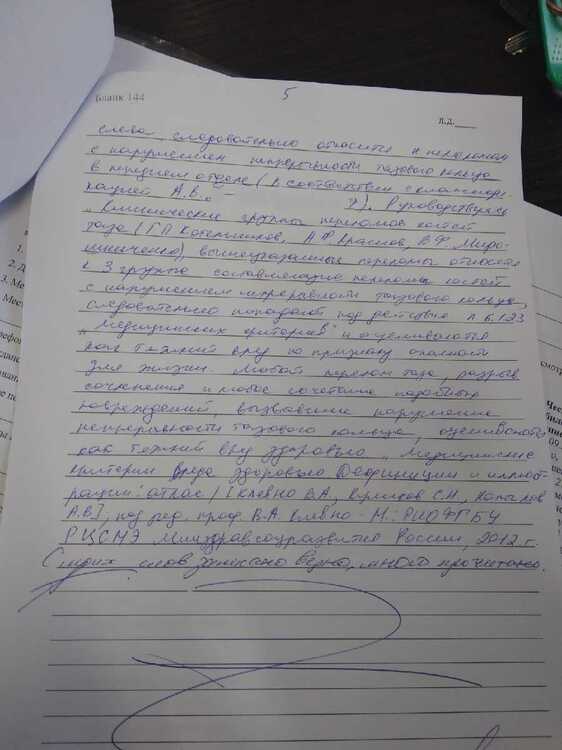 Бланк 144
5
л.д.
слева, следовательно относится к переломам
с нарушением непрерывности тазового кольца
в переднем отделе (в соответствии с классифи-
кацией А.В.
2). Руководствуясь
„Клинические группы переломов костей
таза (Г.П. Котельников, А.Ф. Краснов, В.Ф. Миро-
шниченко), вышеуказанные переломы относятся
к 3 группе составляющие переломы костей
с нарушением непрерывности тазового кольца,
следовательно попадают под действие п. 6.1.23
„Медицинских критериев" и оцениваются
как тяжкий вред по признаку опасности
для жизни. Любой перелом таза, разрыв
сочленения и любое сочетание подобных
повреждений, вызвавшие нарушение
непрерывности тазового кольца, оценивать
как тяжкий вред здоровью „Медицинские
критерии вреда здоровью Дефиниции и иллюст-
рации: атлас / [Клевно В.А., Куликов С.Н., Копылов
А.В], под ред. проф. В.А. Клевно - М.: РИО ФГБУ
РЦСМЭ Минздравсоцразвития России, 2012 г.
С моих слов записано верно, мною прочитано.